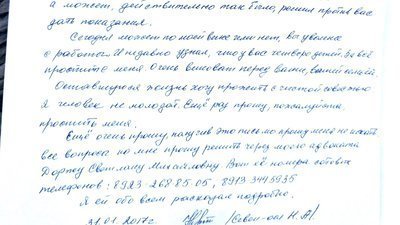 а может, действительно так было, решил против вас
дать показания.
Сегодня может по моей вине или нет, вы уволены
с работы. И недавно узнал, что у вас четверо детей. За всё
простите меня. Очень виноват перед вами, вашей семьёй.
Оставшуюся жизнь хочу прожить с чистой совестью
Я человек не молодой. Ещё раз прошу, пожалуйста
простить меня.
Ещё очень прошу получив это письмо прошу меня не искать
все вопросы по мне прошу решить через моего адвоката
Дортже Светлану Михайловну Вот её номера сотовых
телефонов: 8923-268-85-05, 8913-3495935
Я ей обо всём рассказал подробно.
31.01.2017г. /Севои-оол Н.А/